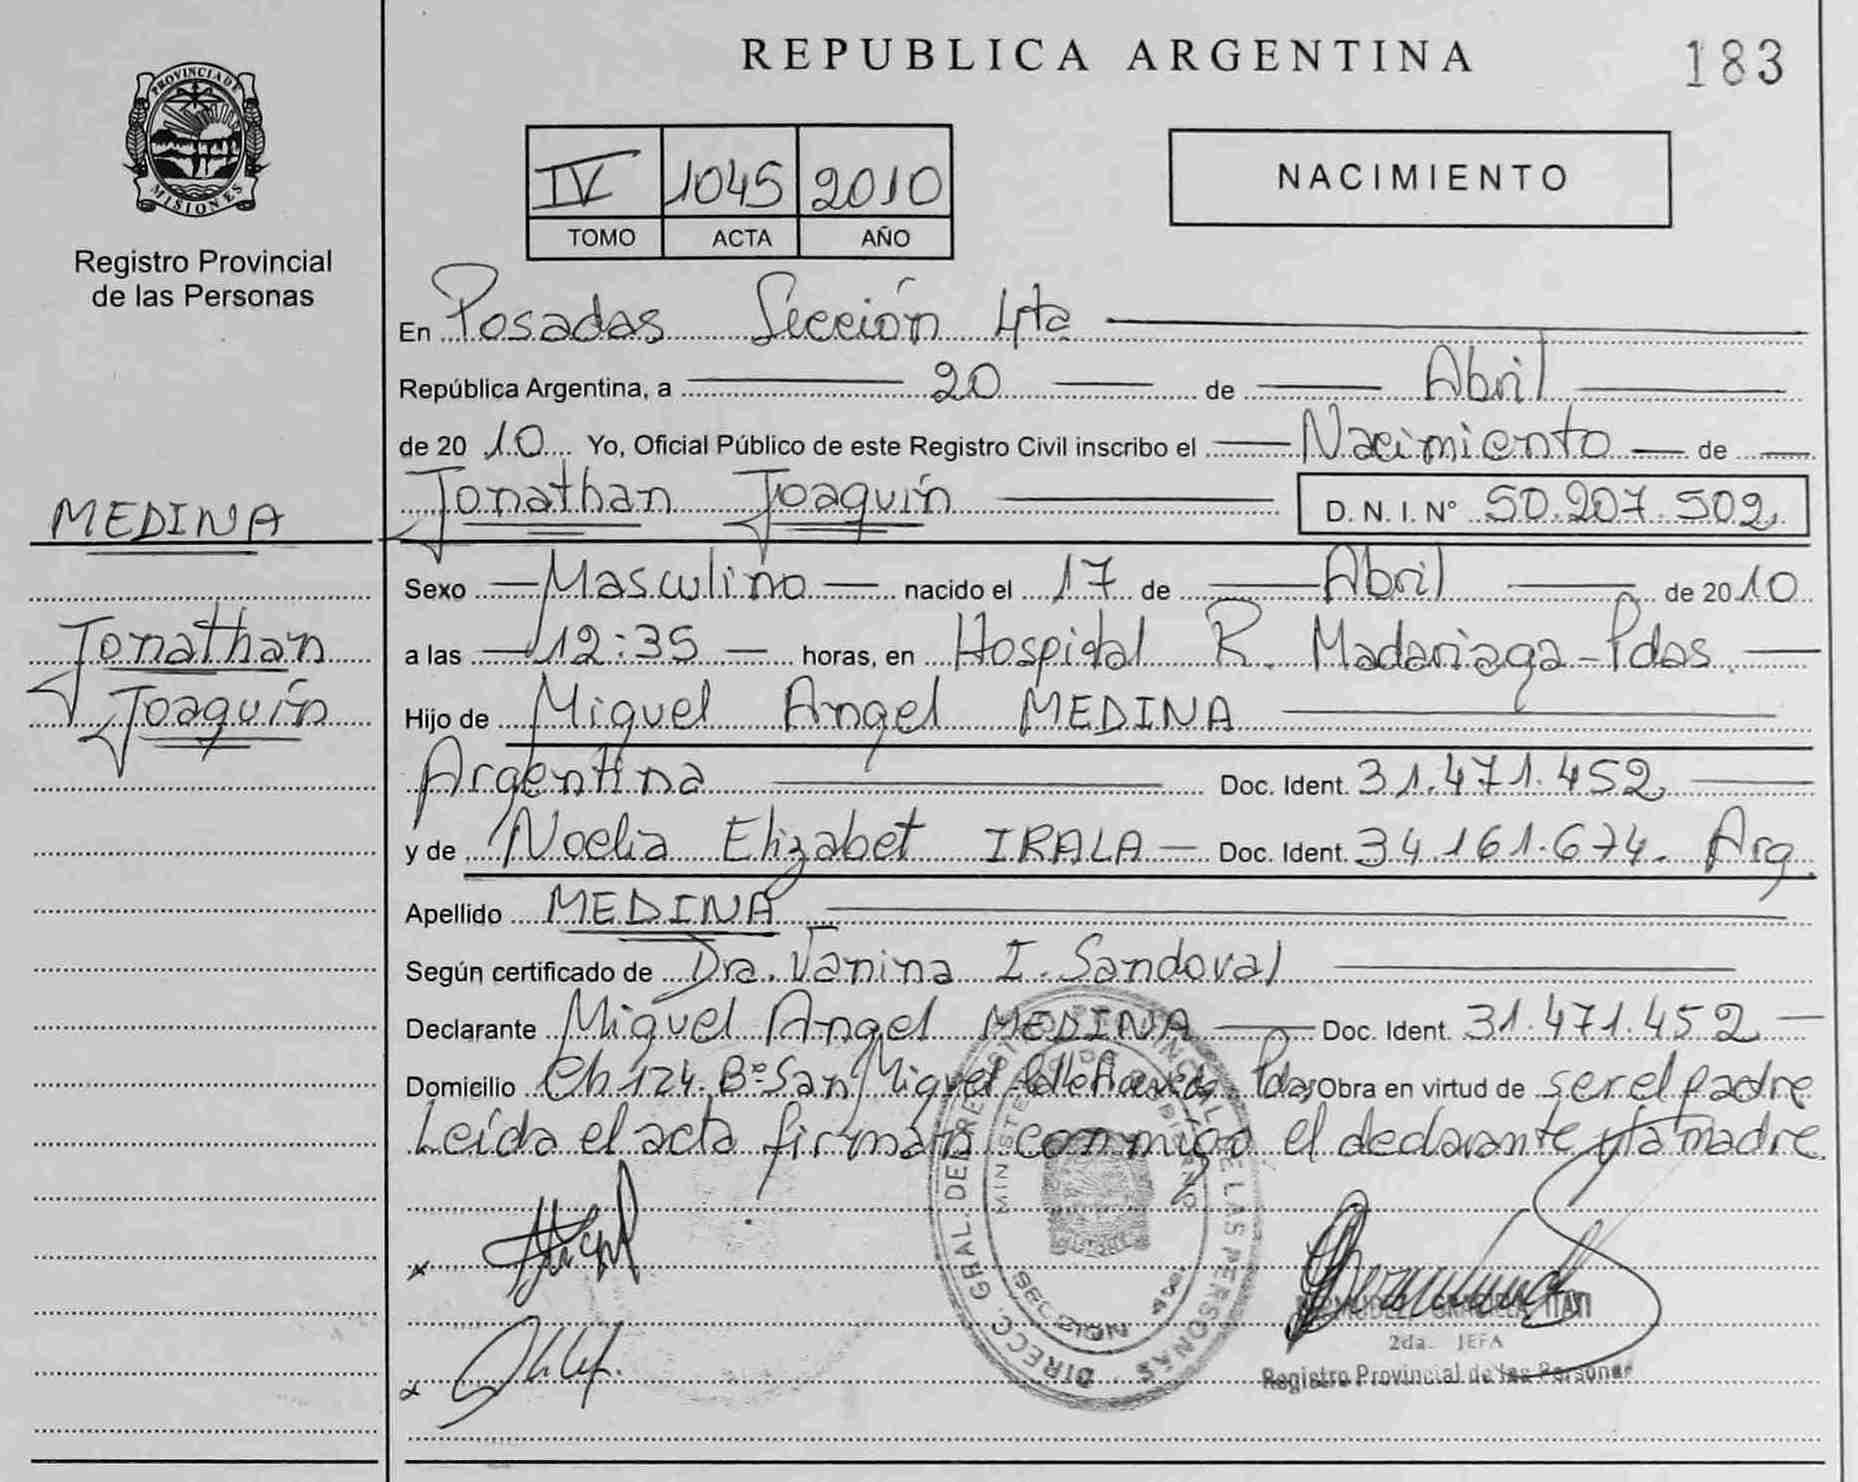 REPUBLICA ARGENTINA
183
PROVINCIA DE
MISIONES
Registro Provincial
de las Personas
IV 1045 2010
TOMO ACTA AÑO
NACIMIENTO
En Posadas Sección 4ta
República Argentina, a 20 de Abril
de 2010 Yo, Oficial Público de este Registro Civil inscribo el Nacimiento de
Jonathan Joaquín D.N.I. N° 50.207.502
MEDINA
Jonathan
Joaquín
Sexo Masculino nacido el 17 de Abril de 2010
a las 12:35 horas, en Hospital R. Madariaga-Pdas.
Hijo de Miguel Angel MEDINA
Argentina Doc. Ident. 31.471.452
y de Noelia Elizabet IRALA Doc. Ident. 34.161.674. Arg.
Apellido MEDINA
Según certificado de Dra. Vanina I. Sandoval
Declarante Miguel Angel MEDINA Doc. Ident. 31.471.452
Domicilio Ch 124. B° San Miguel Calle Pdas Obra en virtud de ser el padre
Leída el acta firman conmigo el declarante y la madre
DIRECC. GRAL. DEL REGISTRO PROVINCIAL DE LAS PERSONAS
MINISTERIO DE GOBIERNO
SECCION 4ta.
GRACIELA ITATI
2da. JEFA
Registro Provincial de las Personas